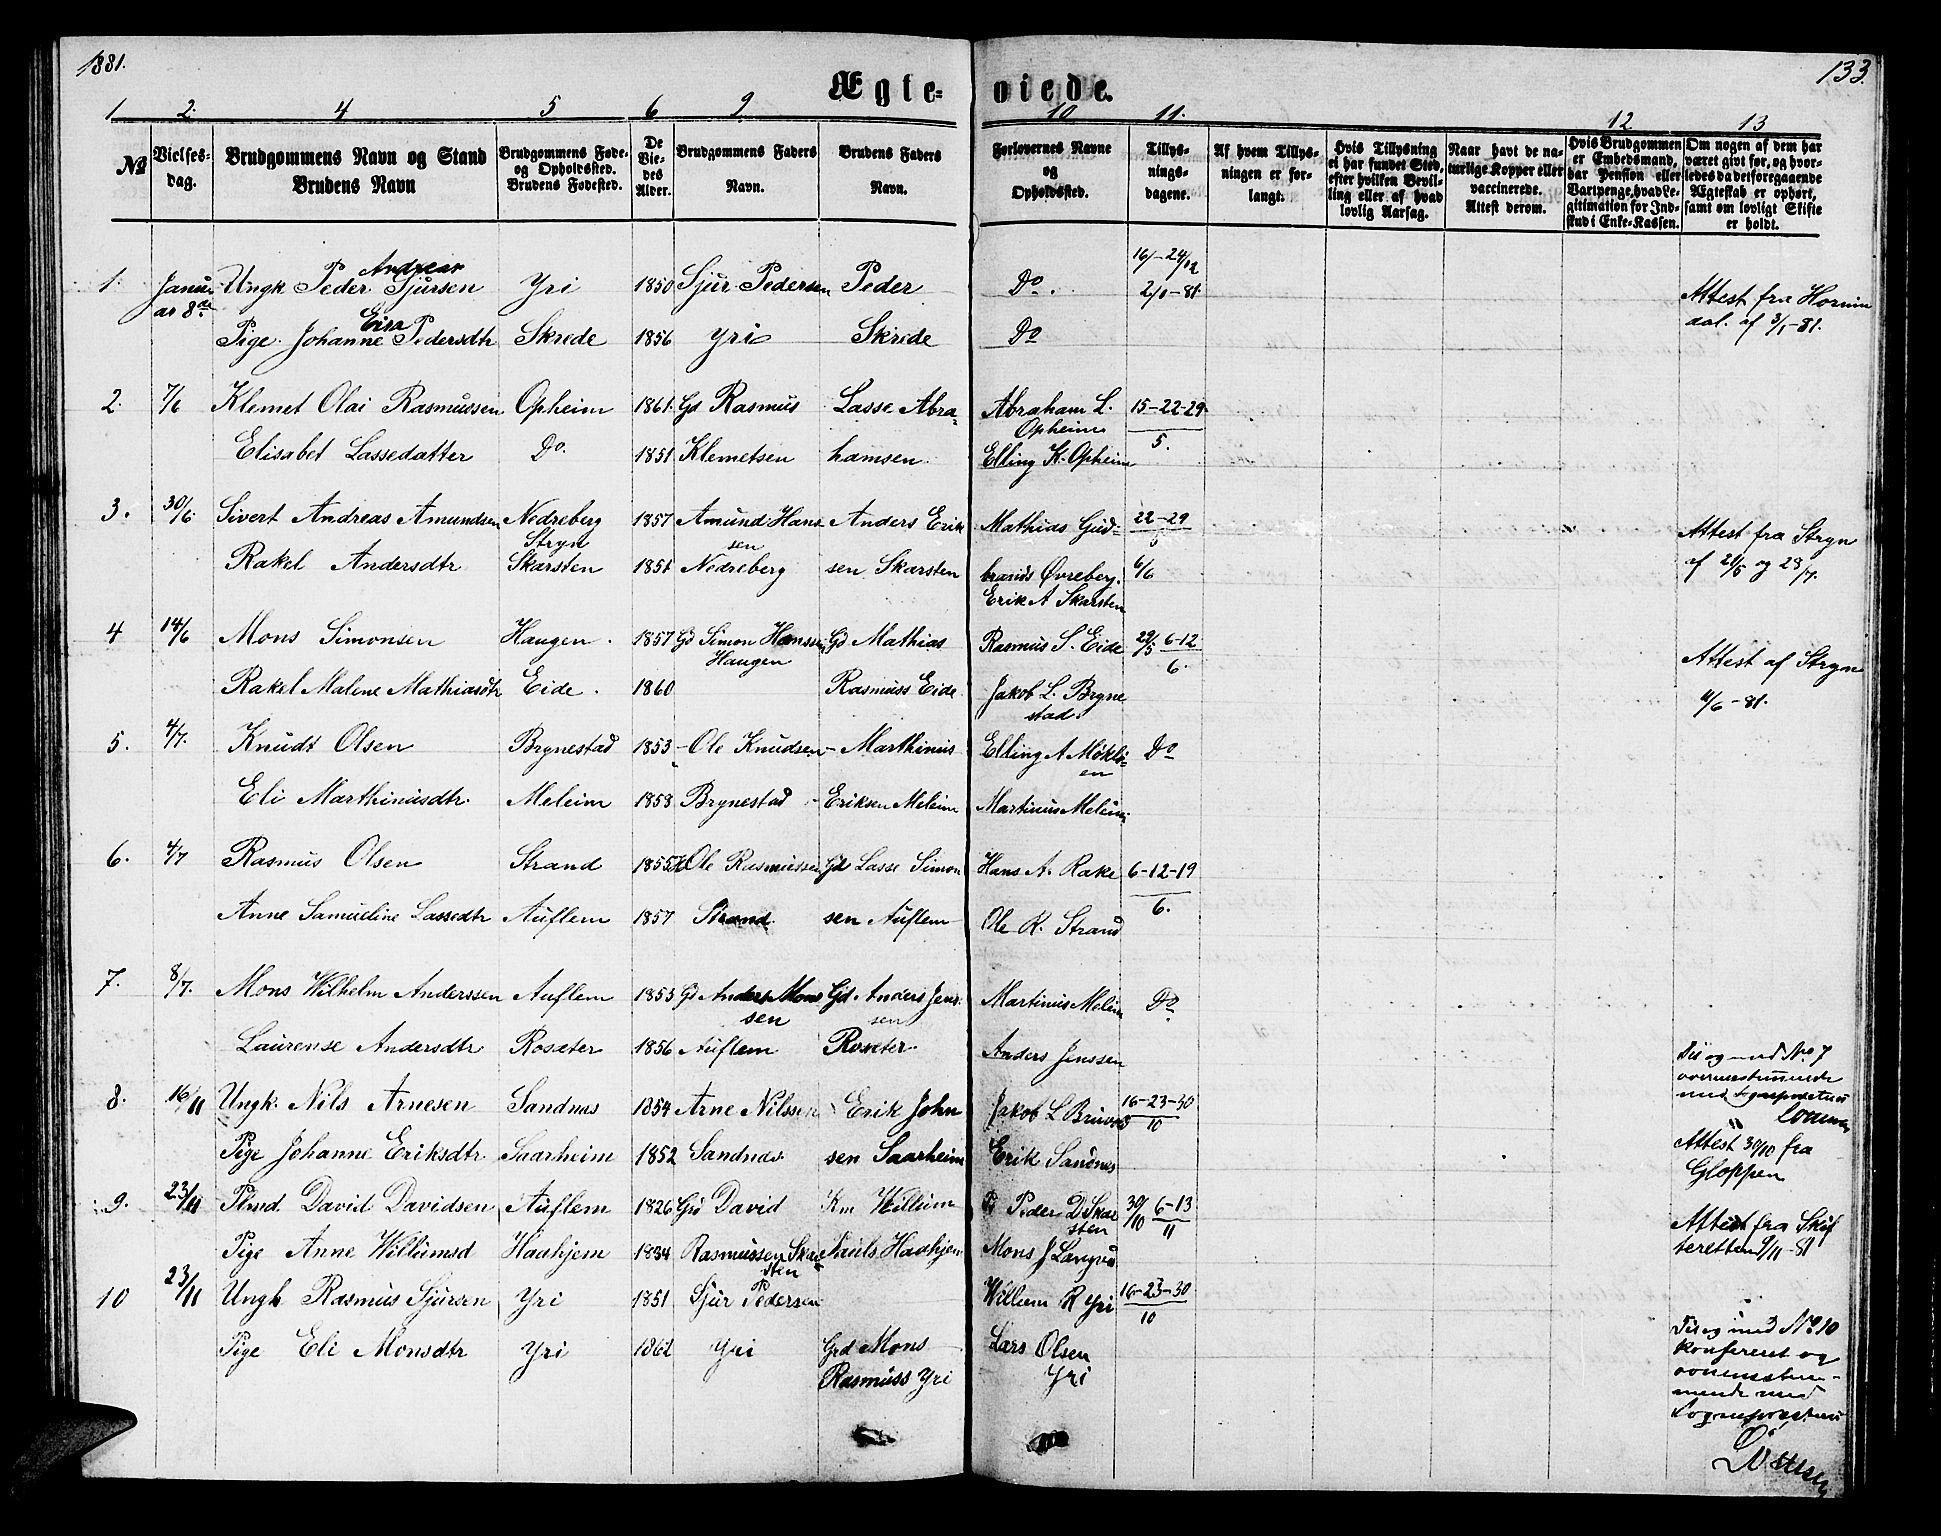 1881.
133
Ægte-viede.
1 2. 4 5 6 9 10 11. 12 13
№
Vielses-dag.
Brudgommens Navn og Stand
Brudens Navn
Brudgommens Føde- og Opholdssted.
Brudens Fødested.
De Viedes Alder.
Brudgommens Faders Navn.
Brudens Faders Navn.
Forlovernes Navne og Opholdssted.
Tillysningsdagene.
Af hvem Tillysningen er forlangt.
Hvis Tillysning ei har fundet Sted, efter hvilken Bevilling eller af hvad lovlig Aarsag.
Naar havt de naturlige Kopper eller vaccinerede. Attest derom.
Hvis Brudgommen er Embedsmand, har Pension eller Vartpenge, hvad Legitimation for Indskud i Enke-Kassen.
Om nogen af dem har været givt før, og hvorledes da det foregaaende Ægteskab er ophørt, samt om lovligt Skifte er holdt.
1. Januar 8de Ungk Peder Andreas Sjursen Yri 1850 Sjur Pedersen Peder Do. 16/ - 24/12
2/1-81 Attest fra Hornindal. af 3/1-81.
Pige. Johanne Pedersdtr Skrede 1856 Yri Skrede Do
2. 7/6 Klemet Olai Rasmussen Opheim 1861. Gd Rasmus Lasse Abra- Abraham L. Opheim 15-22-29
5.
Elisabet Lassedatter Do. 1851 Klemetsen hamsen. Elling K. Opheim
3. 30/6 Sivert Andreas Amundsen Nedreberg Stryn 1857 Amund Hanssen Anders Erik Mathias Gud- 22-29
5 Attest fra Stryn
Rakel Andersdtr Skarsten 1851 Nedreberg sen Skarsten brands Øvreberg. 6/6
Erik A Skarsten
4 14/6 Mons Simonsen Haugen. 1857 Gd Simon Hanssen Haugen Gd Mathias Rasmus S. Eide 29/5 6-12
6. Attest af Stryn
Rakel Malene Mathiasdtr Eide. 1860 Rasmuss Eide Jakob L. Brynestad. 4/6-81.
5. 4/7. Knudt Olsen Brynestad 1853 - Ole Knudsen - Marthinus Elling A Møkløen Do
Eli Marthinusdtr. Meleim 1858 Brynestad Eriksen Meleim Martinus Meleim
6. 4/7 Rasmus Olsen Strand 1855 Ole Rasmussen Gd Lasse Simon Hans A. Rake 6-12-19
6.
Anne Samueline Lassedtr Auflem 1857 Strand sen Auflem Ole R. Strand
7. 8/7. Mons Wilhelm Anderssen Auflem 1853 Gd Anders Monssen Gd. Anders Jenssen Martinus Meleim Do
Laurense Andersdtr Roseter 1856 Auflem Roseter Anders Jenssen
Til og med No 7
overensstemmende
med Sognepræstens
8. 16/11 Ungk. Nils Arnesen Sandnæs 1854 Arne Nilssen Erik John Jakob L 16-23-30
10
Pige Johanne Eriksdtr Saarheim 1852 Sandnæs sen Saarheim Erik Sandnæs Attest 30/10 fra Gloppen
9. 23/11 Plmd. David Davidsen Auflem 1826 Grd David Km Willum Peder D Skarsten 30/10 6-13
11 Attest fra Skifteretten 9/11-81
Pige Anne Willumsd Haahjem 1834 Rasmussen Skarsten Pauls. Haahjem Mons J
10 23/11 Ungk Rasmus Sjursen Yri 1851 Sjur Pedersen Willum R Yri 16-23-30
10
Pige Eli Monsdtr Yri 1862 Yri Grd Mons Rasmuss Yri Lars Olsen Yri
Til og med No 10
konfereret og
overensstemmende med
Sognepræstens